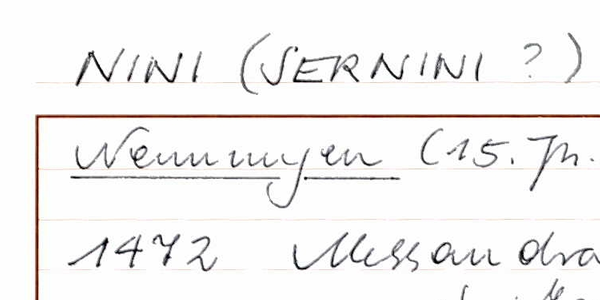 NINI (SERNINI ?)
Nennungen (15. Jh.
1472 Alessandra